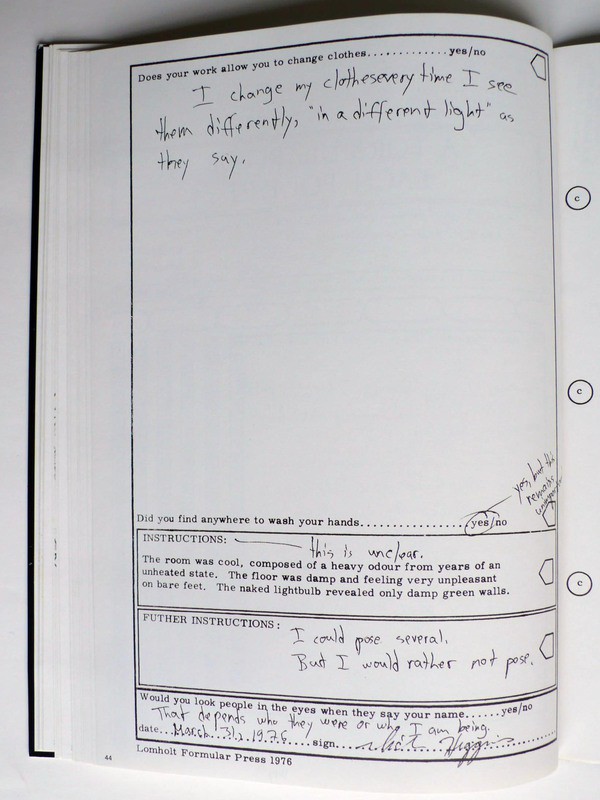 Does your work allow you to change clothes.............yes/no
I change my clothes every time I see
them differently, "in a different light" as
they say.
c
c
yes, but this
remains
Did you find anywhere to wash your hands................yes/no
INSTRUCTIONS:
this is unclear.
The room was cool, composed of a heavy odour from years of an
unheated state. The floor was damp and feeling very unpleasant
on bare feet. The naked lightbulb revealed only damp green walls.
c
FUTHER INSTRUCTIONS:
I could pose several.
But I would rather not pose.
Would you look people in the eyes when they say your name......yes/no
That depends who they were or who I am being.
date...March 31, 1976....sign....Higgins
44
Lomholt Formular Press 1976